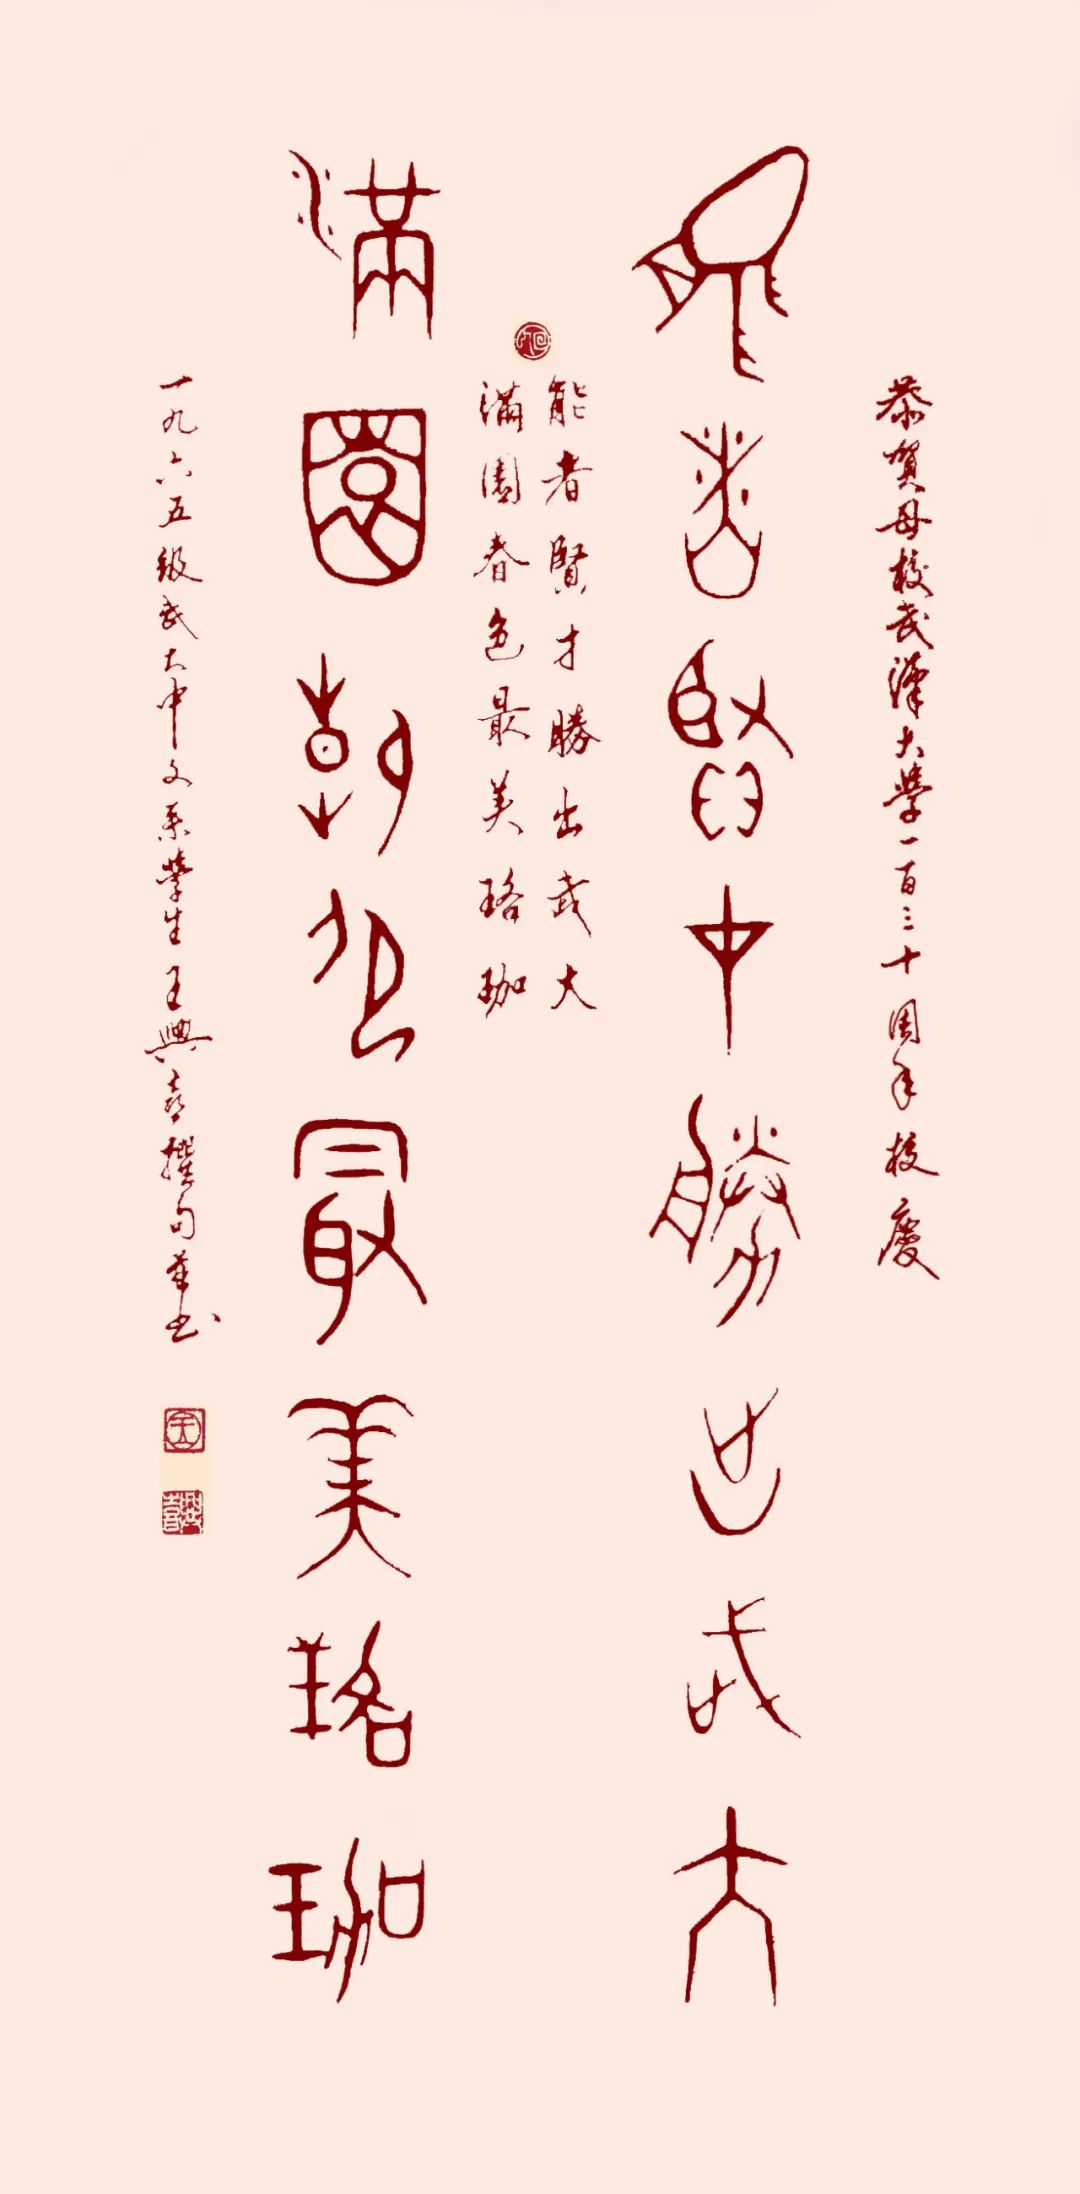 恭賀母校武漢大學一百三十周年校慶
能者賢才勝出武大
能者賢才勝出武大
滿園春色最美珞珈
滿園春色最美珞珈
一九六五級武大中文系學生王興喜撰句並书